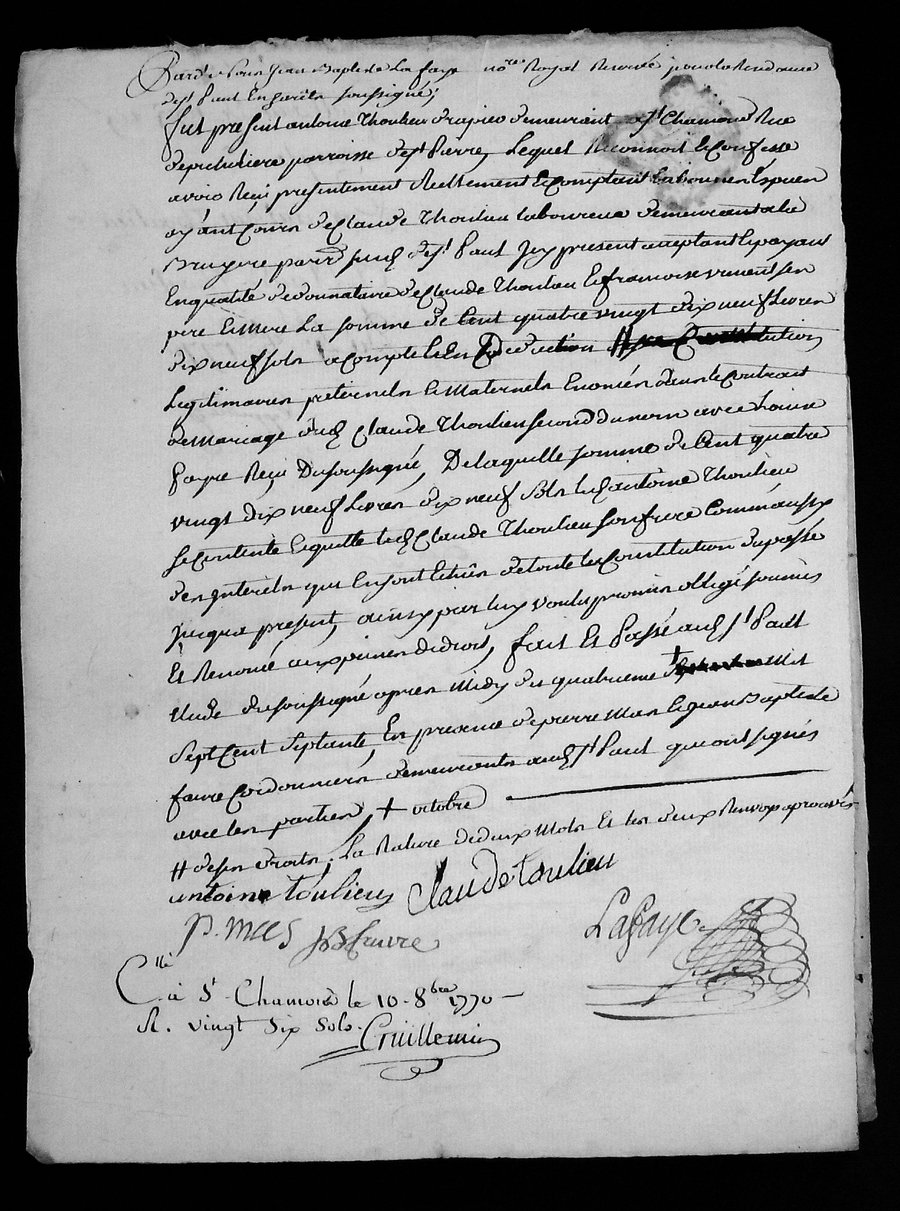 Pardt. Nous Jean Baptiste La faye nore. Royal Reservé pour la Residance
de St. Paul En Jarêts soussigné;
fut present antoine Thoulieu drapier demeurant a St. Chamond Rue
de parroisse de St. Pierre, Lequel Reconnoit & Confesse
avoir Reçû presentement Reellement & Comptant en bonnes Espees
ayant Cours de Claude Thoulieu laboureur demeurant a la
Bruyere parre. sud. de St. Paul Icy present acceptant & payant
En qualité de donnataire de Claude Thoulieu & francoise ses
pere & Mere La somme de Cent quatre vingt dix neuf Livres
dix neuf sols acompte & En Deduction # Constitution
Legitimaires paternels & Maternels Enoncés dans le Contrait
de Mariage dud. Claude Thoulieu second du nom avec Loüise
fayre Reçû Du soussigné, De laquelle somme de Cent quatre
vingt dix neuf Livres dix neuf sols led. antoine Thoulieu
se Contente & quitte led. Claude Thoulieu son frere Comm' aussy
des Interêts qui En sont Echûs de toute la Constitution du passé
jusqua present, ainsy par luy voulu promis obligé soumis
Et Renoncé aux peines de droit, fait Et Passé aud. St. Paul
Etude du soussigné apres Midy le quatrieme + Mil
Sept Cent Septante, En presence de pierre Mas & jean Baptiste
faure Cordonniers demeurants aud. St. Paul qui ont signés
avec les parties, + octobre
# de ses droits; La Rature de deux Mots Et les deux Renvoys aprouvés
antoine toulieu Claude toulieu
P. mas JB faure Lafaye
Cllé
à St. Chamond le 10. 8bre 1770 —
R. vingt Six Sols. Guillemin